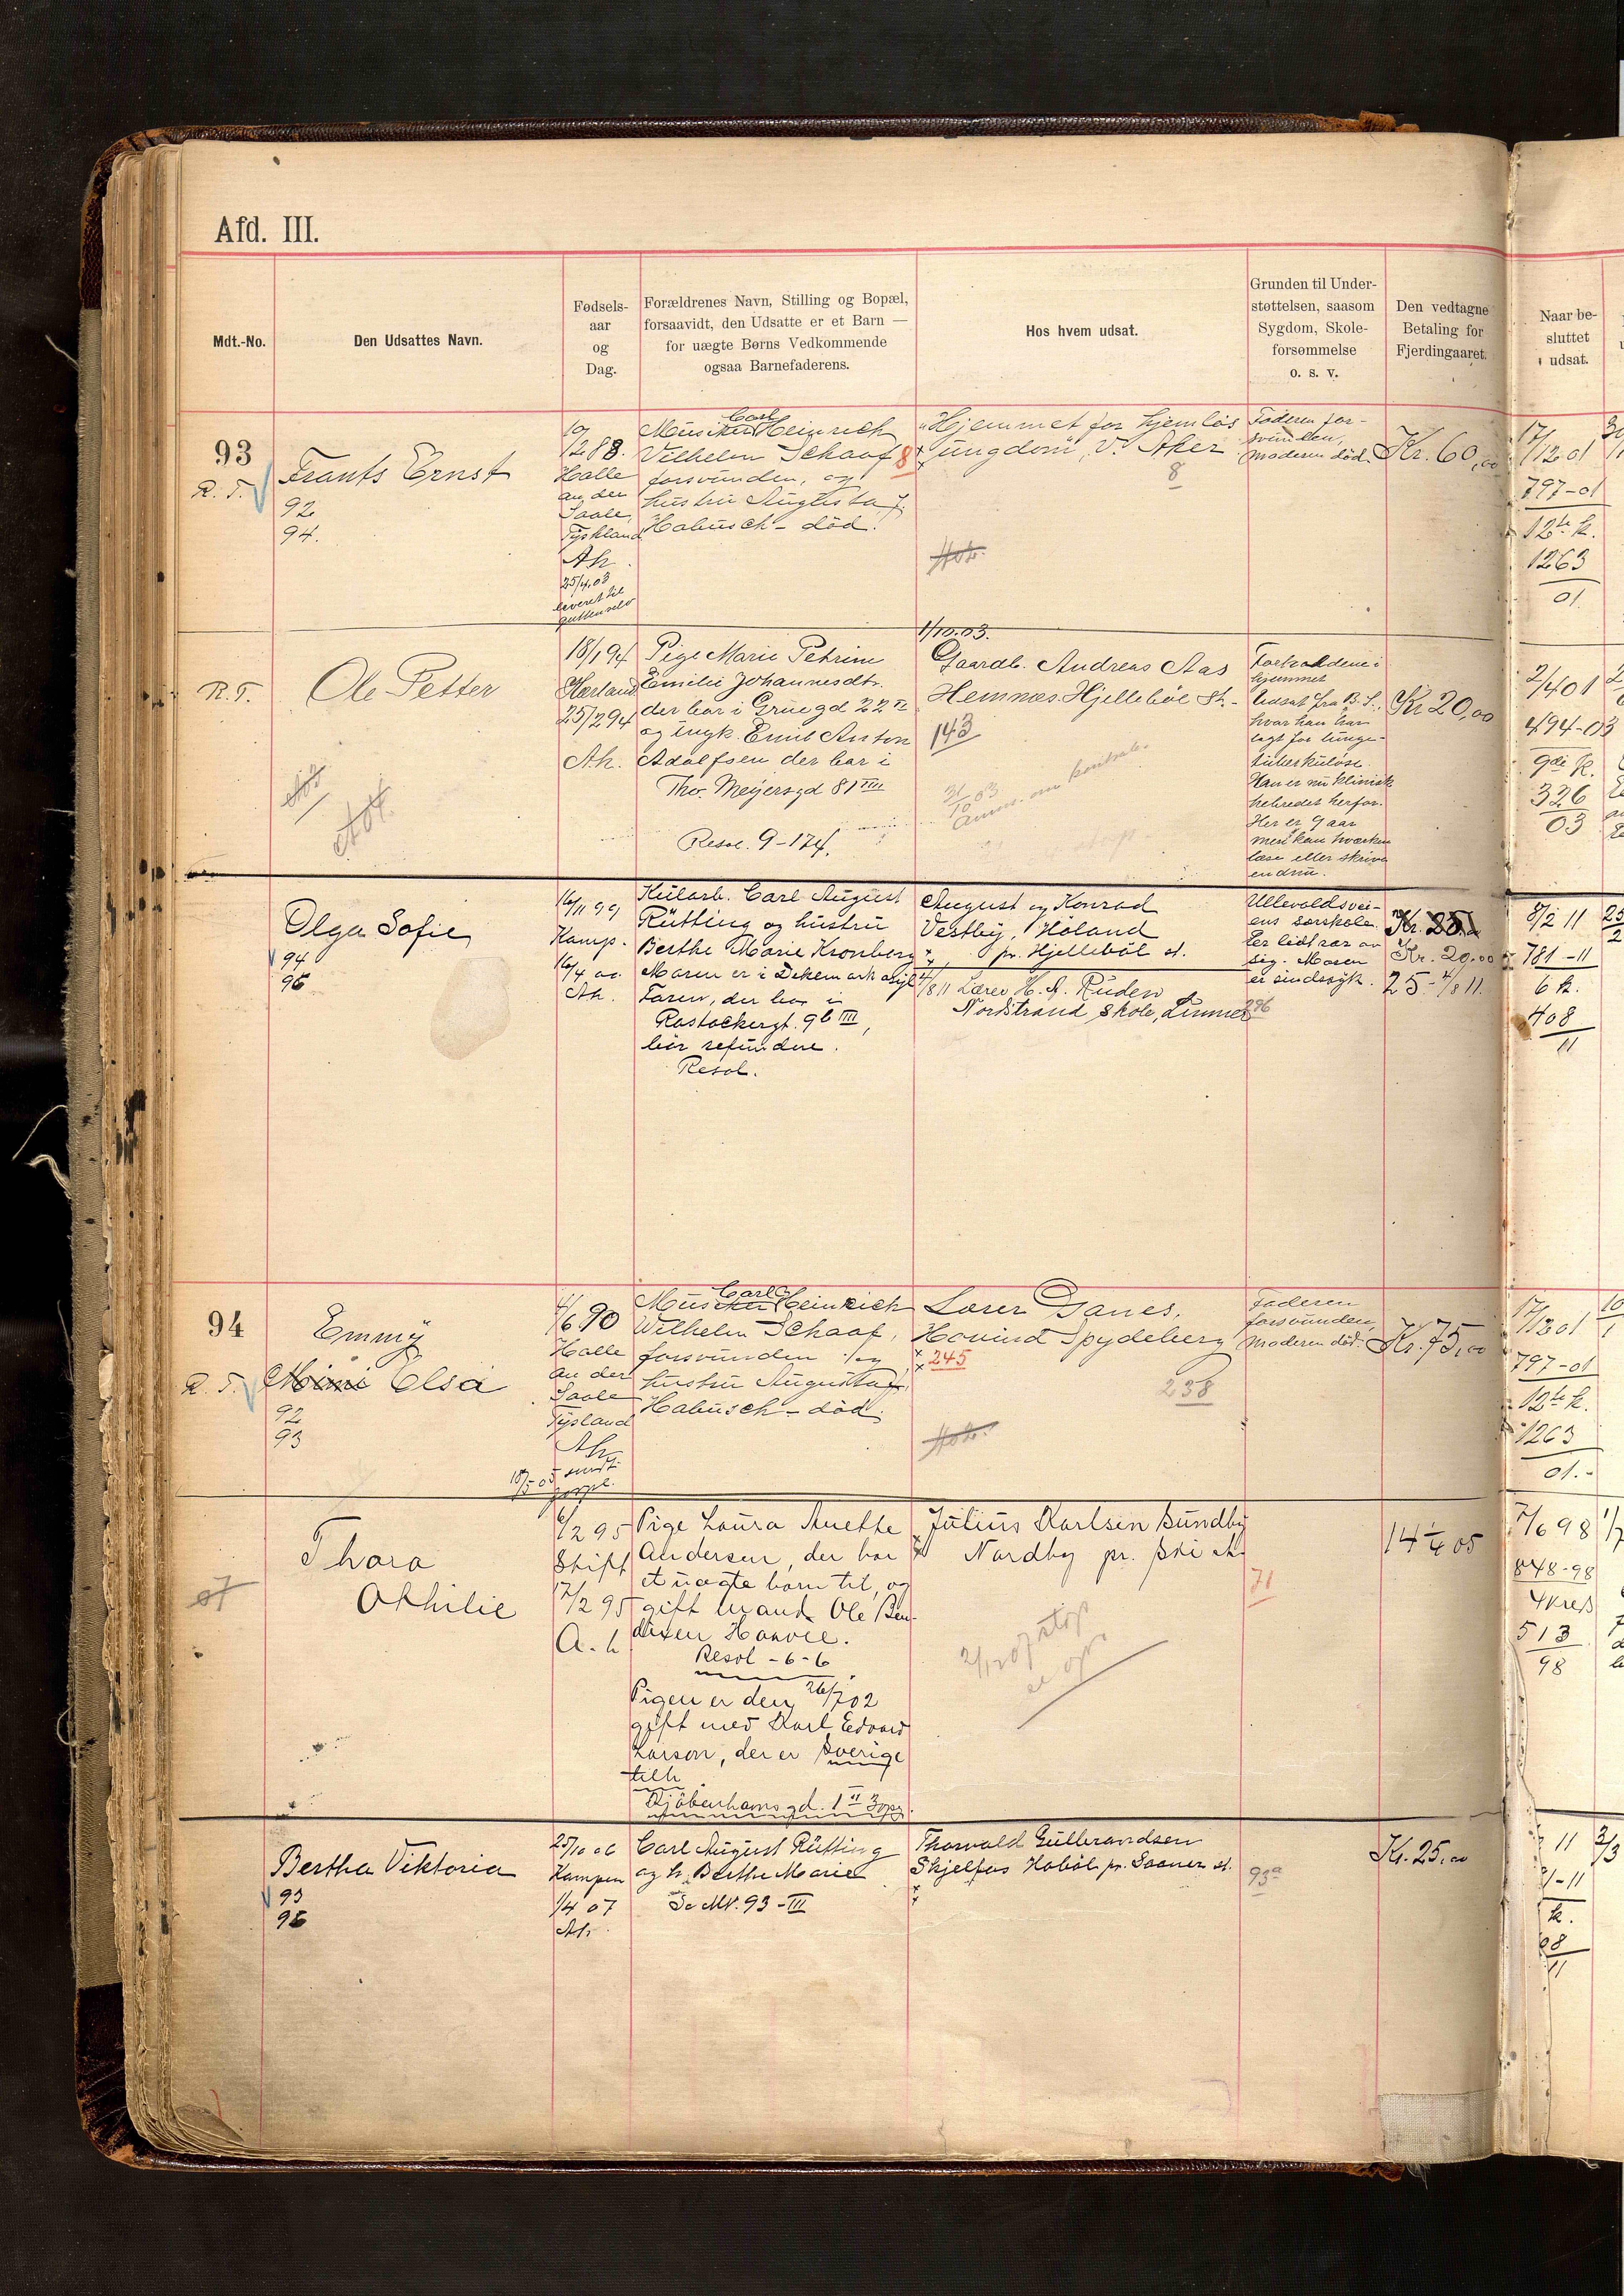 Afd. III.
Mdt.-No.
Den Udsattes Navn.
Fødsels-
aar
og
Dag.
Forældrenes Navn, Stilling og Bopæl,
forsaavidt, den Udsatte er et Barn —
for uægte Børns Vedkommende
ogsaa Barnefaderens.
Hos hvem udsat.
Grunden til Under-
støttelsen, saasom
Sygdom, Skole-
forsømmelse
o. s. v.
Den vedtagne
Betaling for
Fjerdingaaret.
Naar be-
sluttet
udsat.
93
R. T.
Frants Ernst
92
94.
10/12 88.
Halle
an der
Saale,
Tyskland
Ah.
25/4.03
leveret til
Carl
Musiker Heinrich
Vilhelm Schaaf
forsvunden, og
hustru Augusta f.
Habusch - död.
8
"Hjemmet for hjemløs
Ungdom", V. Aker
8
Faderen for-
svunden,
moderen död.
Kr. 60,00
17/12 01
797-01
12te k.
1263
01.
R. T.
Ole Petter
18/1 94
Hærland
25/2 94
Ah.
Pige Marie Petrine
Emilie Johannesdtr.
der bor i Gruegd 22 II
og ungk. Emil Anton
Adolfsen der bor i
Thv. Meyersgd 81 IIII
Resol. 9-174.
1/10.03.
Gaardb. Andreas Aas
Hemnæs Hjellebøl St.
143
31/10 03
Anm. om kontrak.
Forholdene i
hjemmet
Udsat fra B. S.,
hvor han har
lagt for lunge-
tuberkuløse.
Han er nu klinisk
helbredet herfor.
Her er 9 aar
men kan hverken
læse eller skrive
endnu.
Kr 20,00
2/4 01
494-03
9de k.
326
03
Olga Sofie
94
96
16/11 99
Kamp.
16/4 00.
Ah.
Kularb. Carl August
Rütting og hustru
Berthe Marie Kronberg
Moren er i Dekemark asyl
Faren, der bor i
Rostockergt. 96 III,
bør refundere.
Resol.
August og Konrad
Vestby, Høland
pr. Hjellebøl st.
4/8 11 Lærer H. A. Ruden
Nordstrand Skole, Linnes
296
Ullevoldsvei-
ens særskole.
Ler lidt rar av
sig. Moren
er sindssyk.
Kr. 25.
Kr. 20.00
25 - 4/8 11.
8/2 11
781-11
6 k.
408
11
94
R. T.
Emmy
Mimi Elsa
92
93
4/6 90
Halle
an der
Saale
Tysland
Ah
Carl
Musiker Heinrich
Wilhelm Schaaf,
forsvunden og
hustru Augusta f.
Habusch - död.
Lærer Danes,
Hovind Spydeberg
245
238
Faderen
forsvunden,
moderen död.
Kr. 75,00
17/12 01
797-01
12te k.
1263
01.-
Thora
Othilie
6/2 95
Stift
17/2 95
A. h
Pige Laura Anette
Andersen, der har
et uægte barn til, og
gift mand Ole Ben-
dixen Hanvee.
Resol - 6-6
Pigen er den 26/7 02
gift med Karl Edvard
Larson, der er Sverige
tilh
Kjøbenhavnsgd. 1 II 3opg.
Julius Karlsen Sundby
Nordby pr. Ski st.
71
14 1/4 05
7/6 98
848-98
4 kreds
513
98
Bertha Viktoria
93
96
25/10 06
Kampen
1/4 07
Ah.
Carl August Rütting
og h. Berthe Marie
Se Mt. 93 - III
Thorvald Gulbrandsen
Skjelfos Hobøl pr. Sooner st.
93a
Kr. 25.00